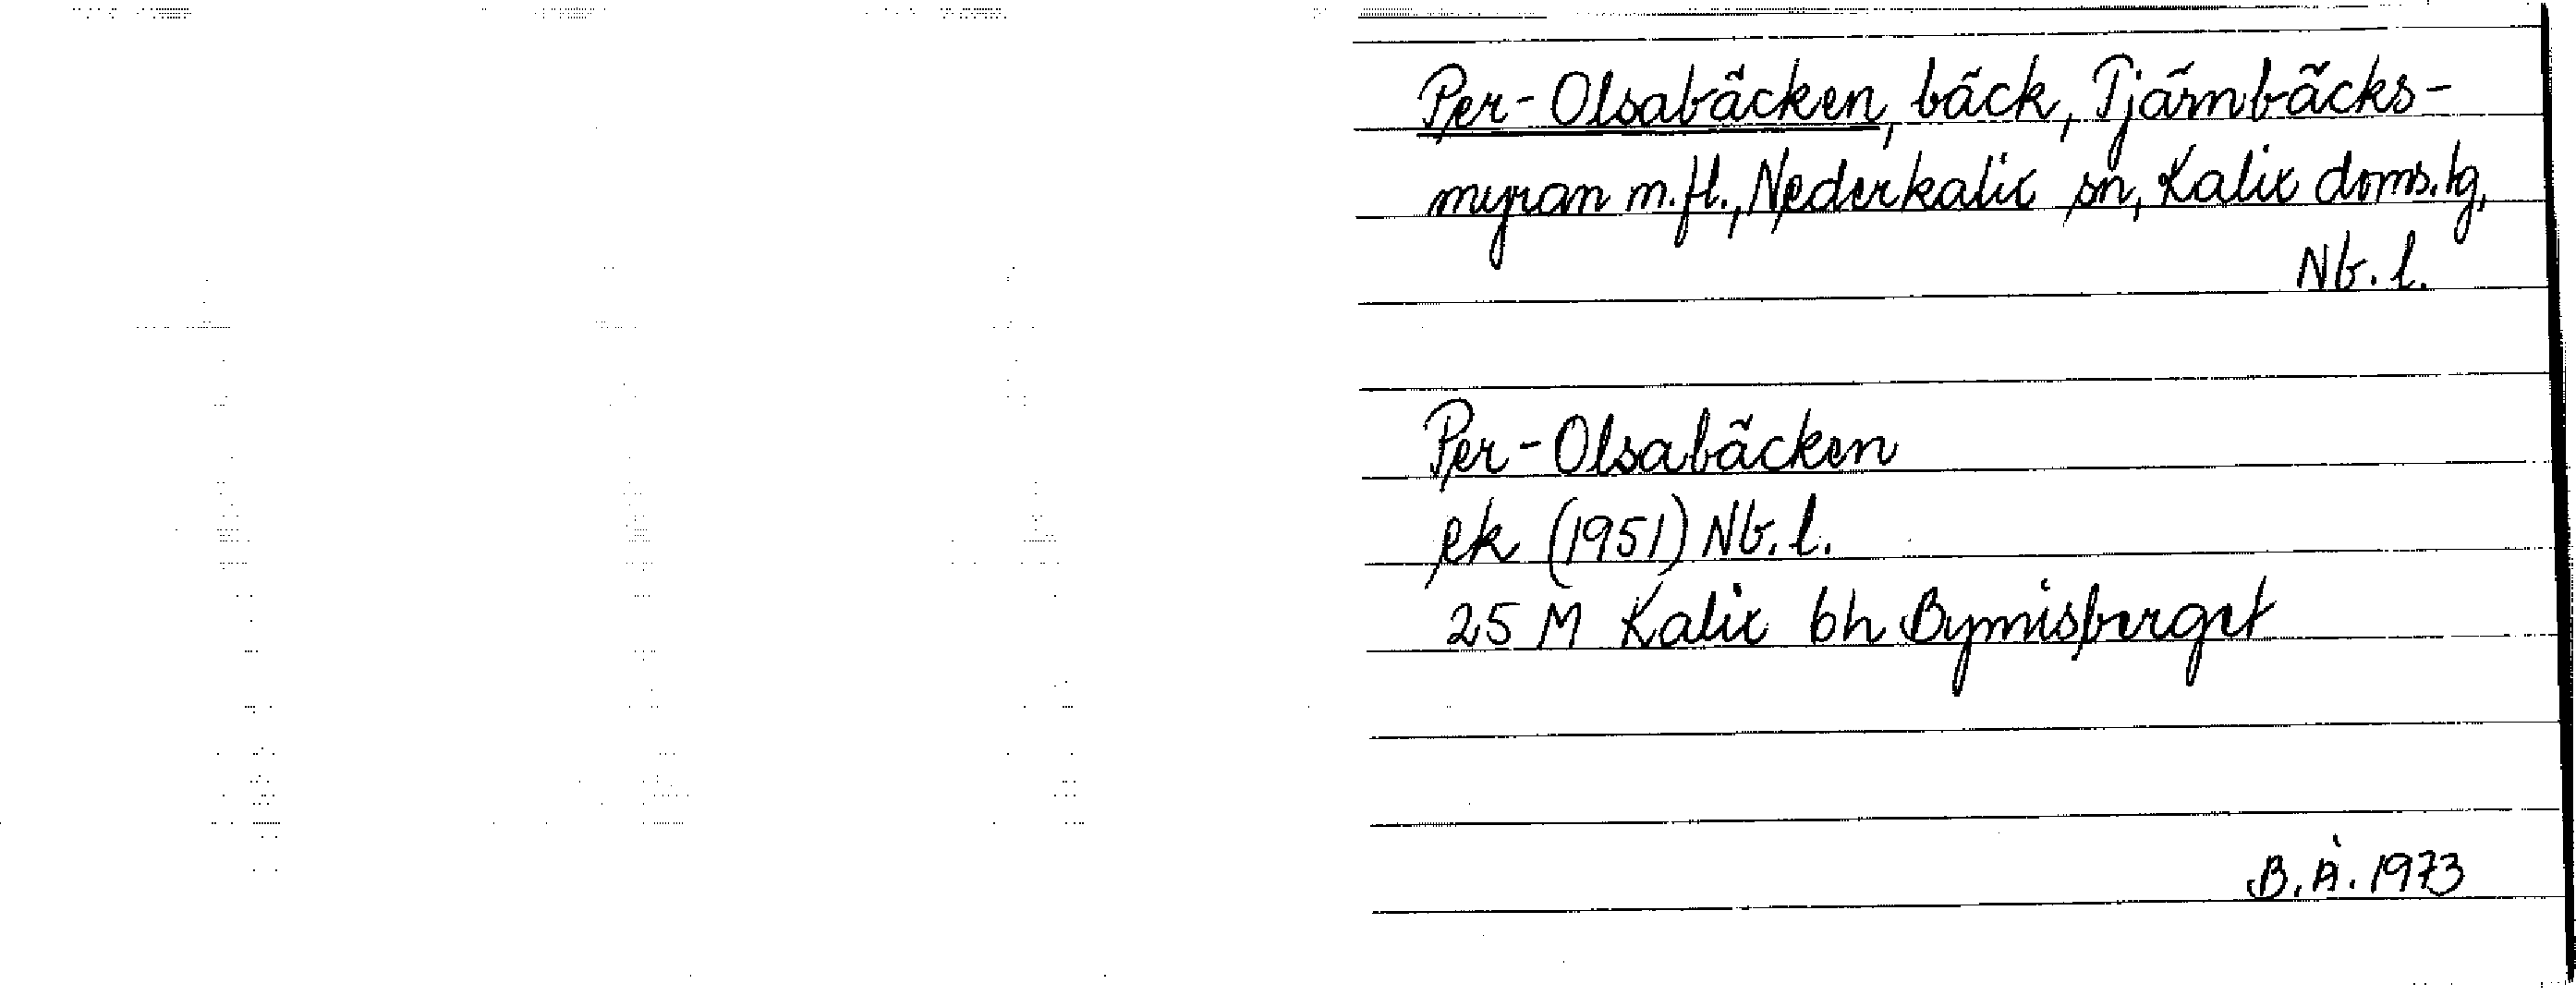 Per-Olsabäcken, bäck, Tjärnbäcks-
myran m.fl., Nederkalix sn, Kalix doms. lg,
Nb. l.
Per-Olsabäcken
ek (1951) Nb. l.
25 M Kalix bh Bymisberget
B. Å. 1973